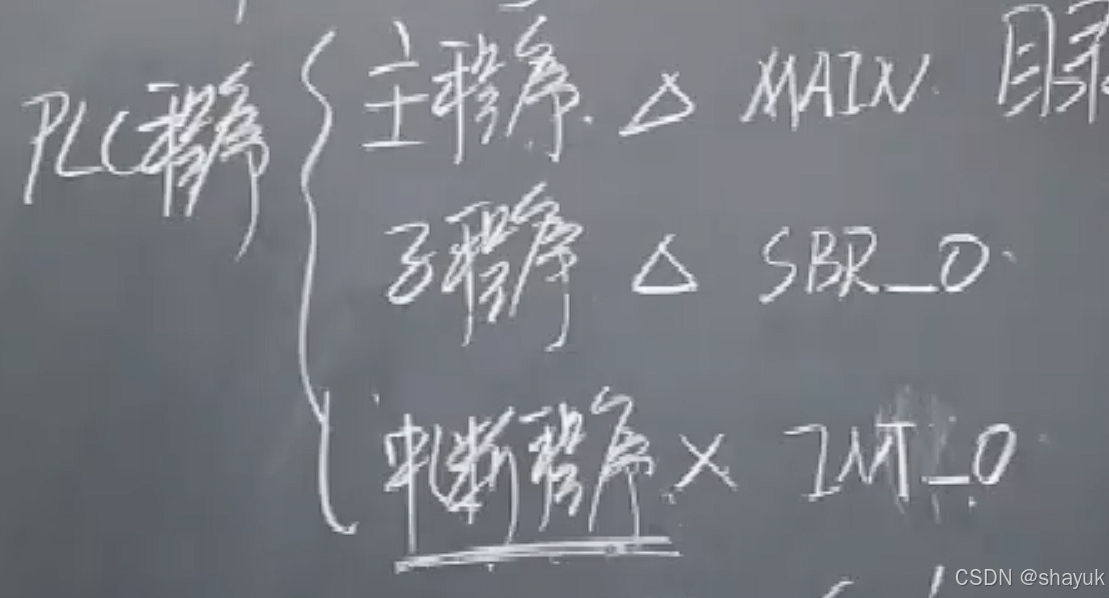 PLC程序
主程序 △ MAIN 目录
子程序 △ SBR_0
中断程序 × INT_0
CSDN @shayuk